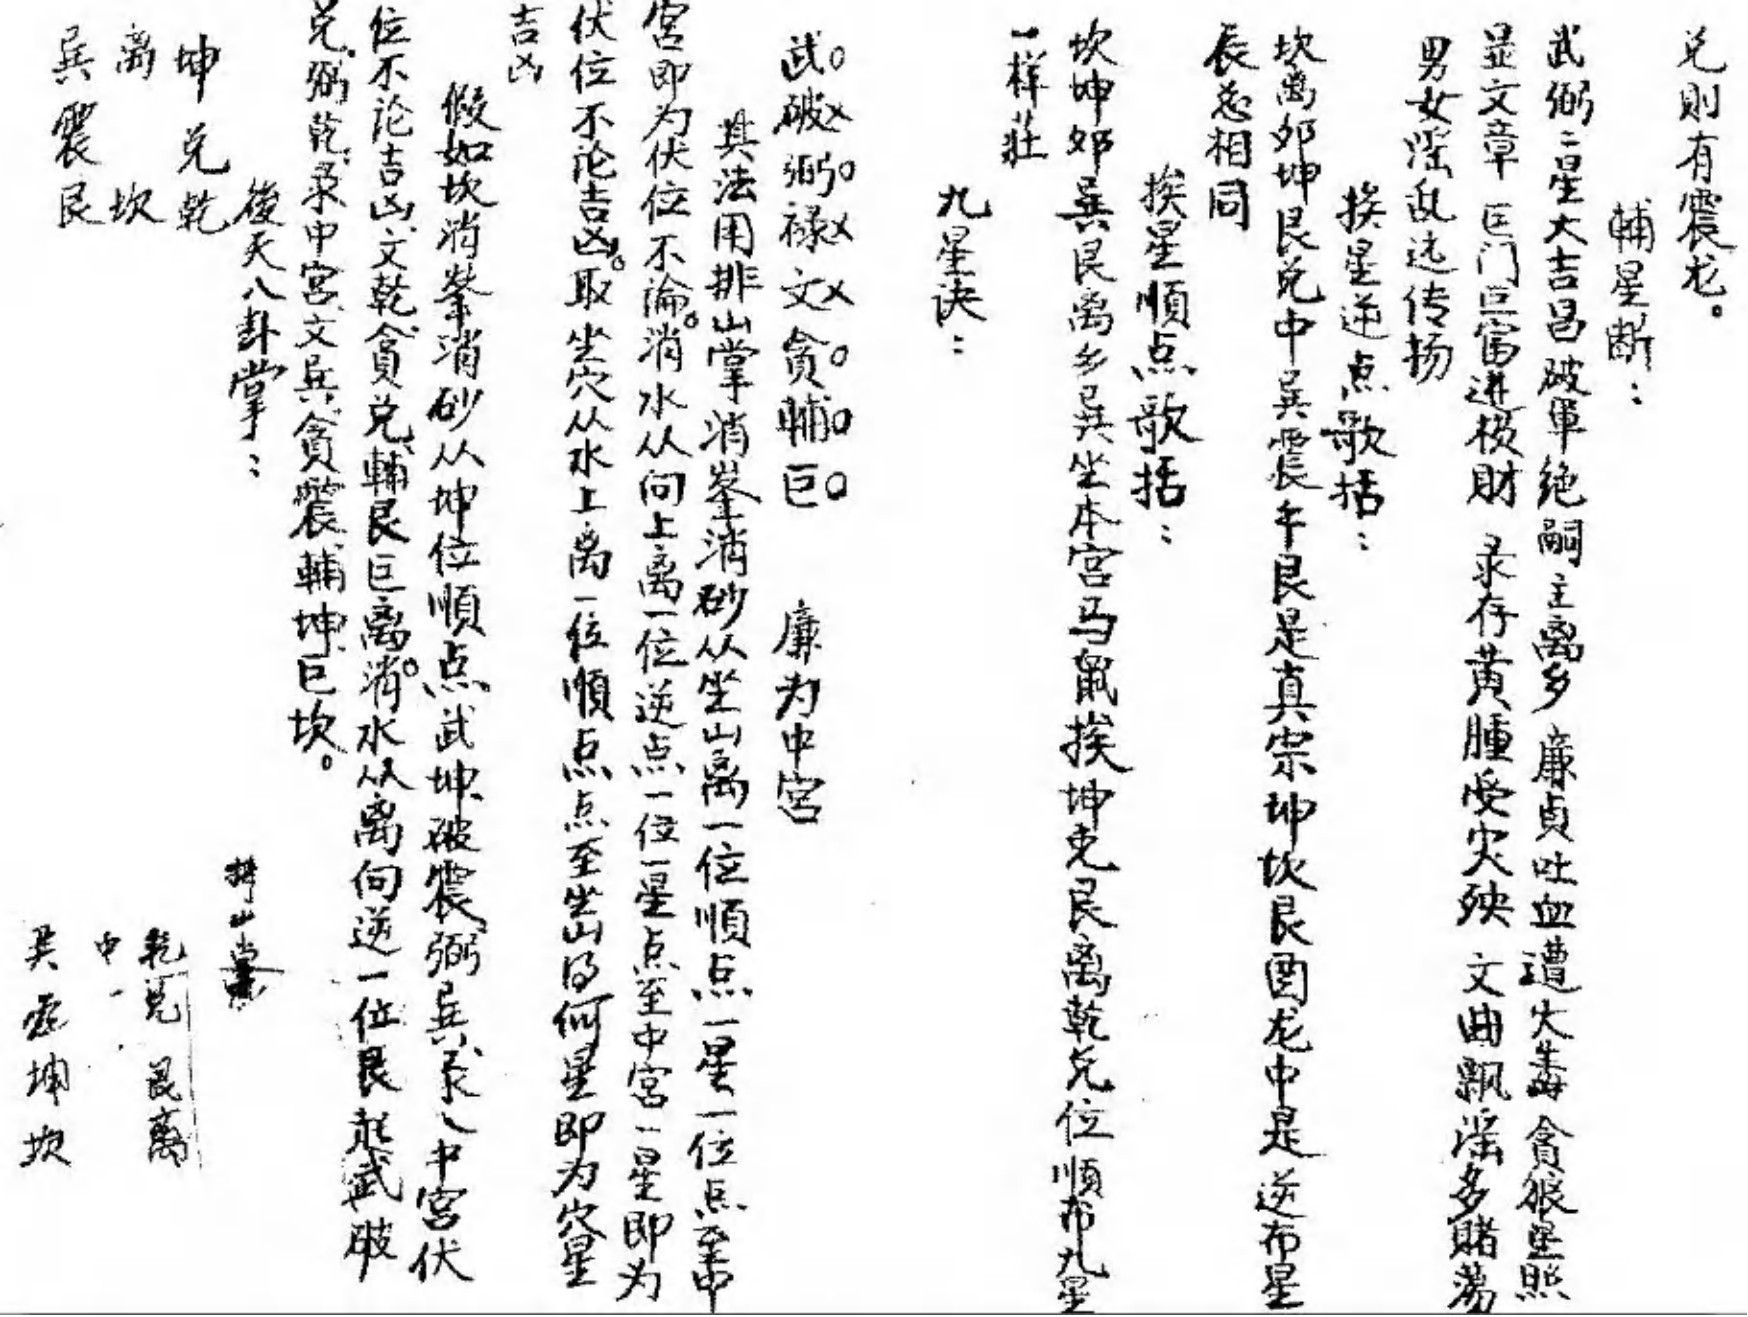 兑則有震龙。
輔星断：
武弼二星大吉昌破軍绝嗣主离乡 廉貞吐血遭火毒 貪狼星照
显文章 巨门巨富进横財 录存黄腫受灾殃 文曲飘淫多賭荡
男女淫乱远传扬
挨星逆点歌括：
坎离 坤艮兑中巽震年艮是真宗坤坎艮酉龙中是逆布星
辰总相同
挨星順点歌括：
坎坤 巽艮离乡巽坐本宫马鼠挨坤兑艮离乾兑位順布九星
一样莊
九星诀：
武○破×弼○禄×文×貪○輔○巨○ 廉为中宫
其法用排山掌消峯消砂从坐山离一位順点一星一位点至中
宫即为伏位不論。消水从向上离一位逆点一位一星点至中宫一星即为
伏位不论吉凶。取坐穴从水上离一位順点点至坐山得何星即为穴星
吉凶
假如坎消峯消砂从坤位順点武坤、破震、弼巽、录入中宫伏
位不论吉凶、文乾、貪兑、輔艮巨离。消水从离向逆一位艮起武破
兑、弼乾、录中宫、文巽、貪震、輔坤、巨坎。
後天八卦掌：
坤兑乾
离 坎
巽震艮
排山掌
乾兑艮离
中
巽震坤坎